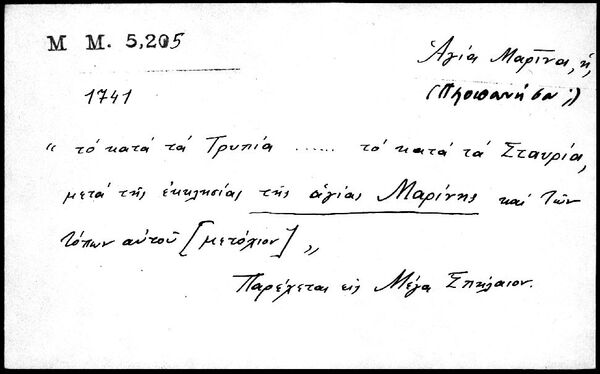 M M. 5,205
Ἁγία Μαρῖνα, ἡ,
1741
« τό κατά τά Τρυπία ...... τό κατά τά Σταυρία,
μετά τῆς ἐκκλησίας τῆς ἁγίας Μαρίνης καί τῶν
τόπων αὐτοῦ [μετόχιον] »
Παρέχεται εἰς Μέγα Σπήλαιον.